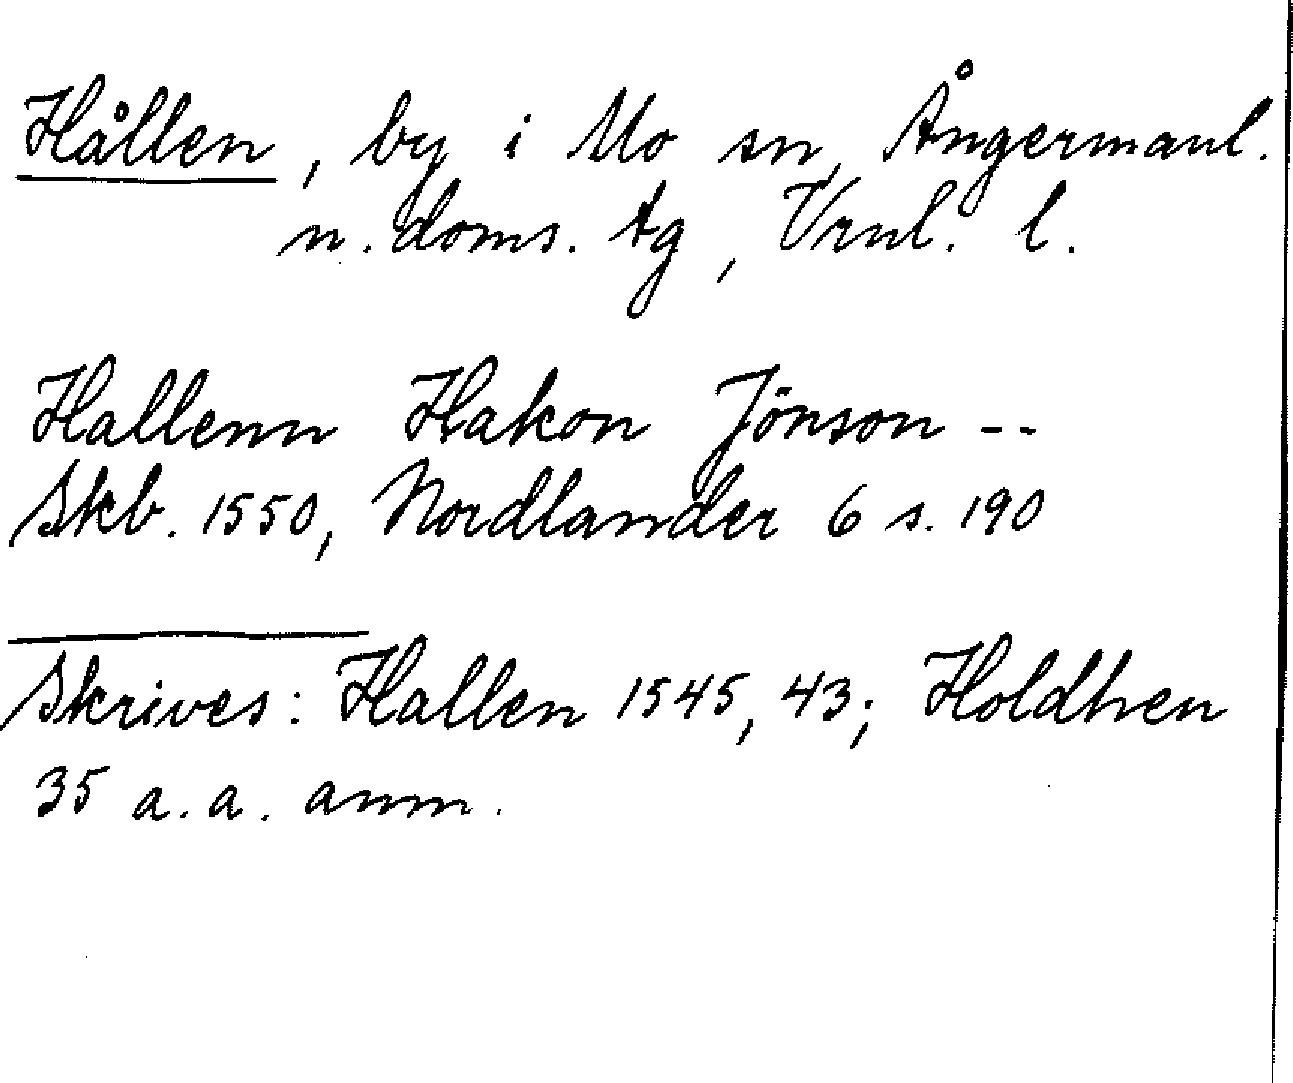 Hållen, by i Mo sn, Ångermanl.
n. doms. tg, Vrnl. l.
Hallenn Hakon Jönson --
Skb. 1550, Nordlander 6 s. 190
Skrives: Hallen 1545, 43; Holdhen
35 a. a. anm.